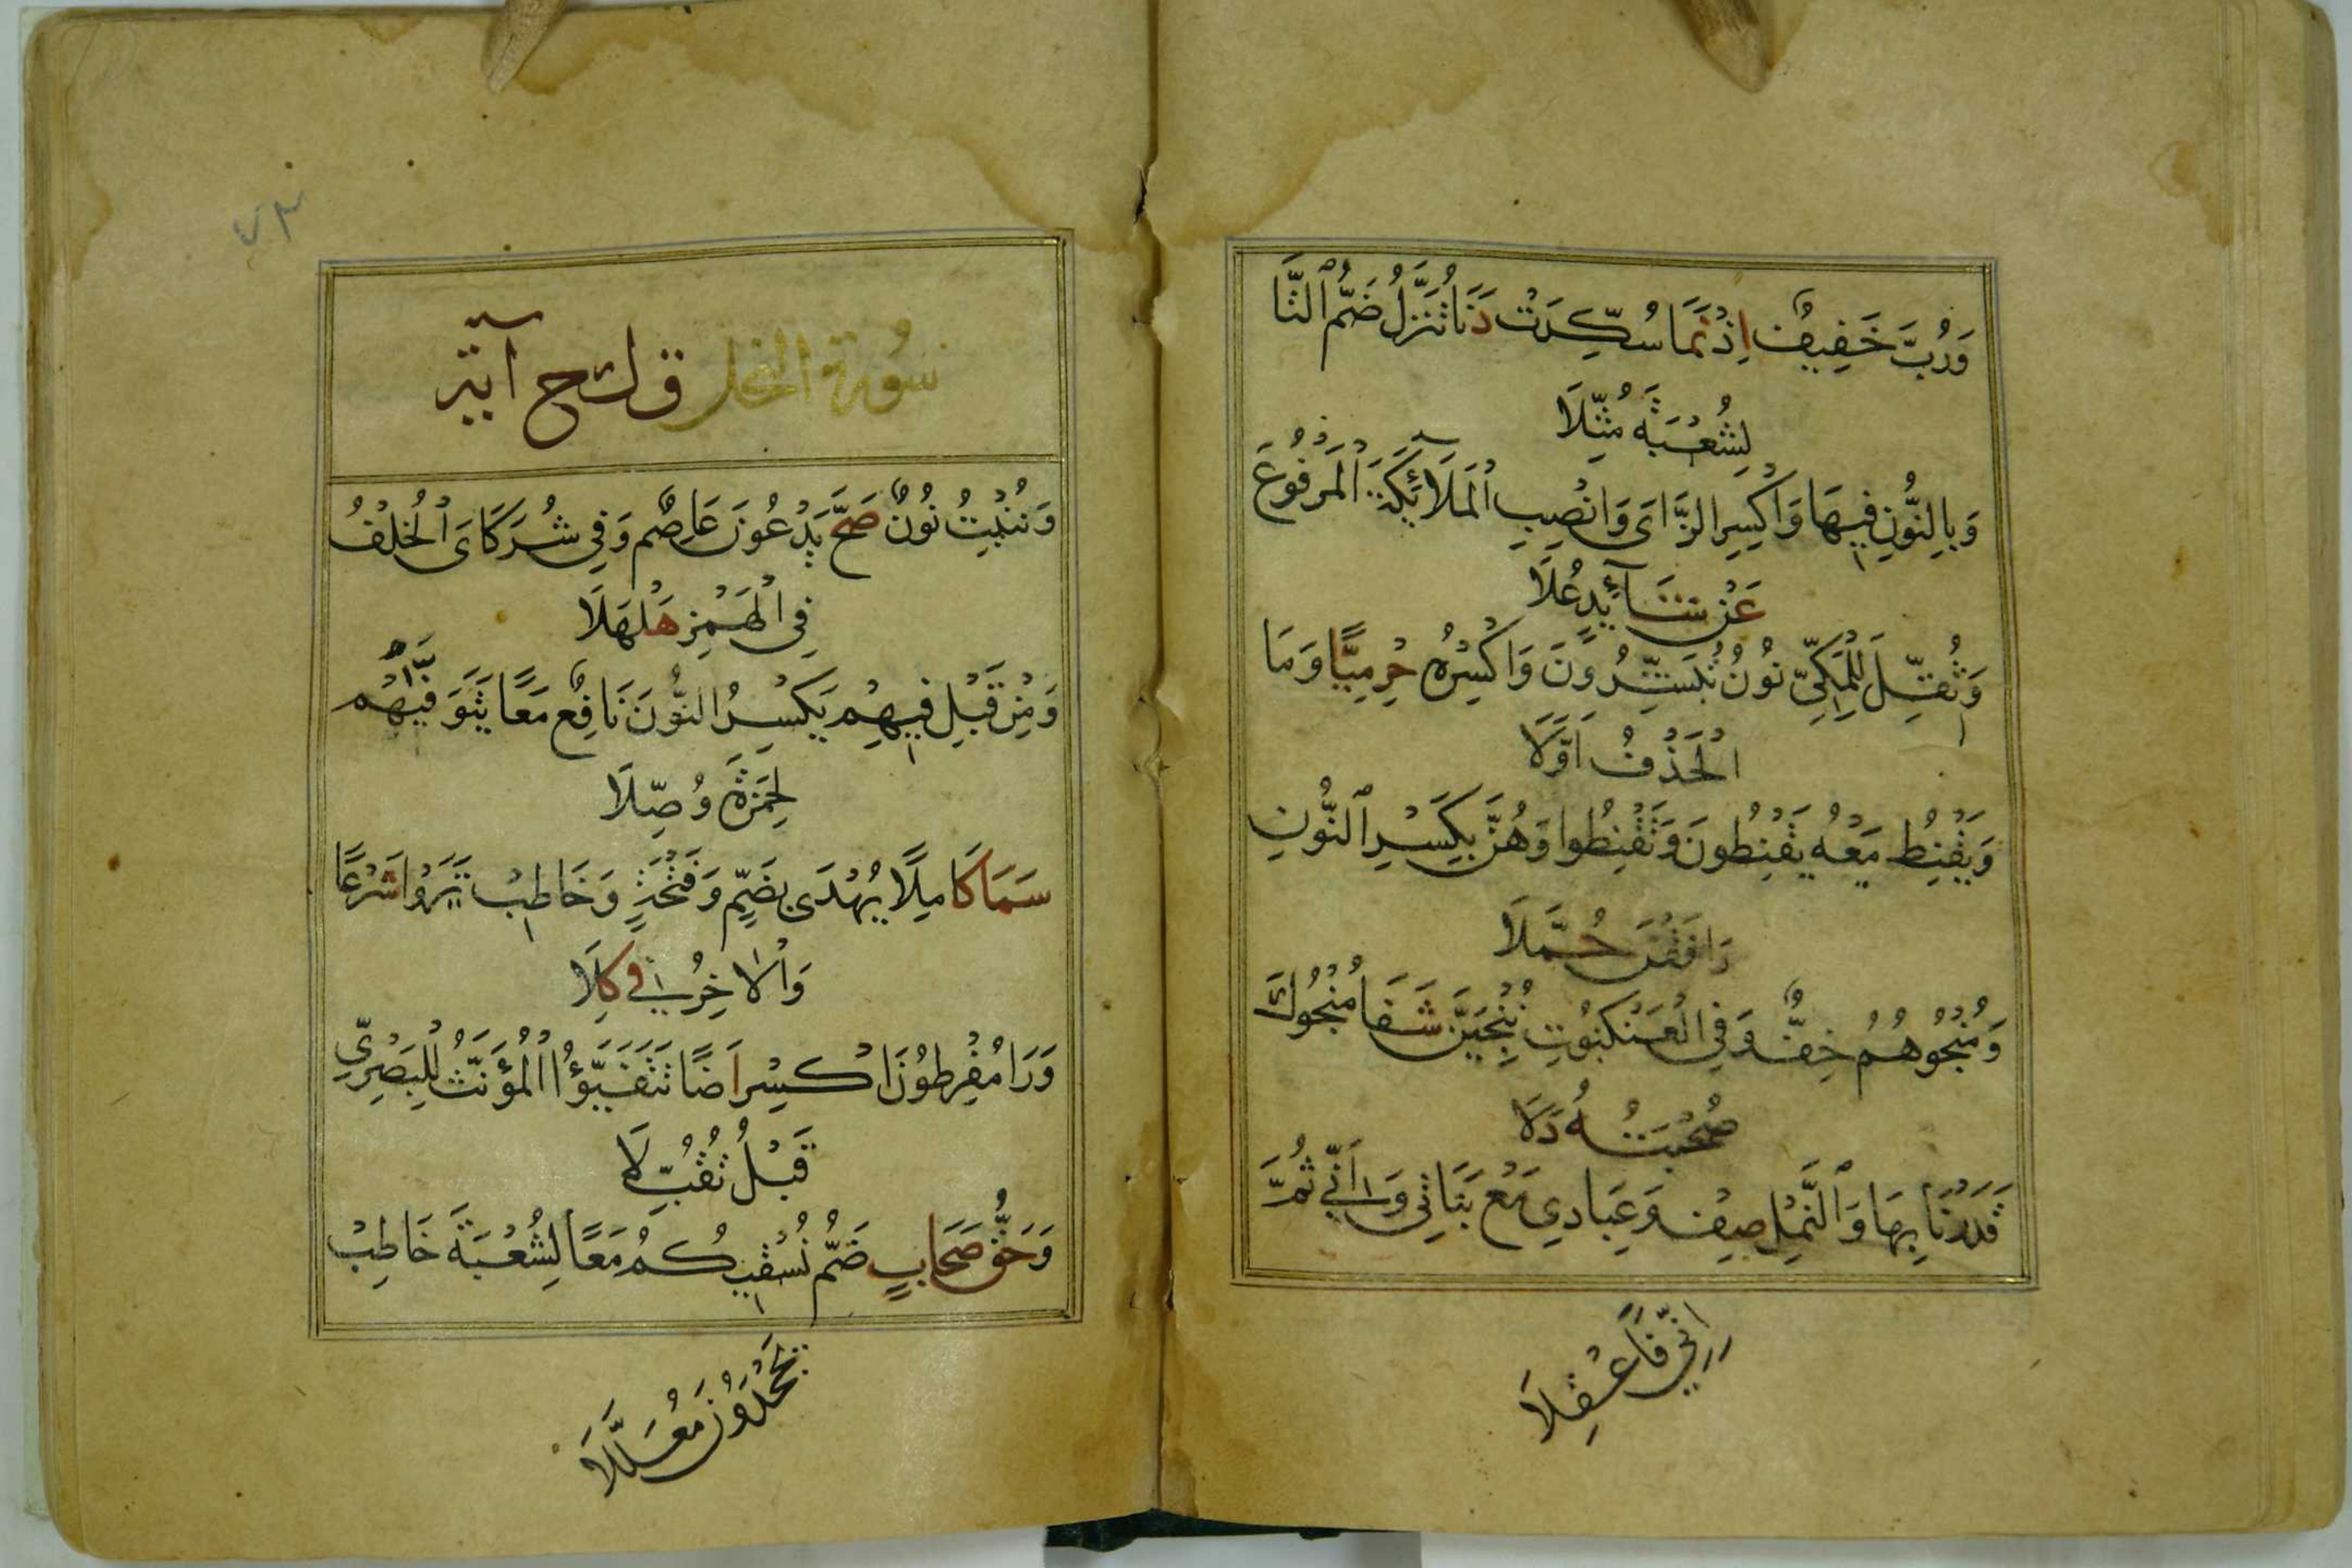 وَرُبَّ خَفِيفٌ اِذْ نَمَا سُكِّرَتْ دَنَا تُنَزَّلُ ضَمُّ ٱلتَّا
لِشُعْبَةَ مُثِّلَا
وَبِالنُّونِ فِيهَا وَاكْسِرِ الزَّاىَ وَانْصِبِ الْمَلَآئِكَةَ الْمَرْفُوعَ
عَنْ شَآئِدٍ عُلَا
وَثُقِّلَ لِلْمَكِّيِّ نُونُ تُبَشِّرُونَ وَاكْسِرْهُ حِرْمِيًّا وَمَا
الْحَذْفُ اَوَّلَا
وَيَقْنِطُ مَعْهُ يَقْنِطُونَ وَتَقْنِطُوا وَهُنَّ بِكَسْرِ ٱلنُّونِ
رَافَقْنَ حُمَّلَا
وَمُنْجُوهُمُ خِفٌّ وَفِي الْعَنْكَبُوتِ نُنْجِيَنَّ شَفَا مُنْجُوكَ
صُحْبَتُهُ دَلَا
قَدَرْنَا بِهَا وَٱلنَّمْلِ صِفْ وَعِبَادِي مَعْ بَنَاتِي وَاَنِّي ثُمَّ
اِنِّي فَاعْقِلَا
٧٣
سُورَة النحل ق ك ح آية
وَنُنْبِتُ نُونٌ صَحَّ يَدْعُونَ عَاصِمٌ وَفِي شُرَكَاىَ الْخُلْفُ
فِي الْهَمْزِ هَلْهَلَا
وَمِنْ قَبْلِ فِيهِمْ يَكْسِرُ النُّونَ نَافِعٌ مَعًا يَتَوَفَّيٰهُمْ
لِحَمْزَةَ وُصِّلَا
سَمَا كَامِلًا يُهْدَى بِضَمٍّ وَفَتْحَةٍ وَخَاطِبْ تَرَوْا شَرْعًا
وَالْاخِرُ فِي كِلَا
وَرَا مُفْرِطُونَ اكْسِرْ اَضًا تَتَفَيَّؤُا الْمُؤَنَّثُ لِلْبَصْرِيِّ
قَبْلُ تُقُبِّلَا
وَحَقُّ صَحَابٍ ضَمُّ نُسْقِيكُمُ مَعًا لِشُعْبَةَ خَاطِبْ
تَجْحَدُونَ مُعَلَّلَا